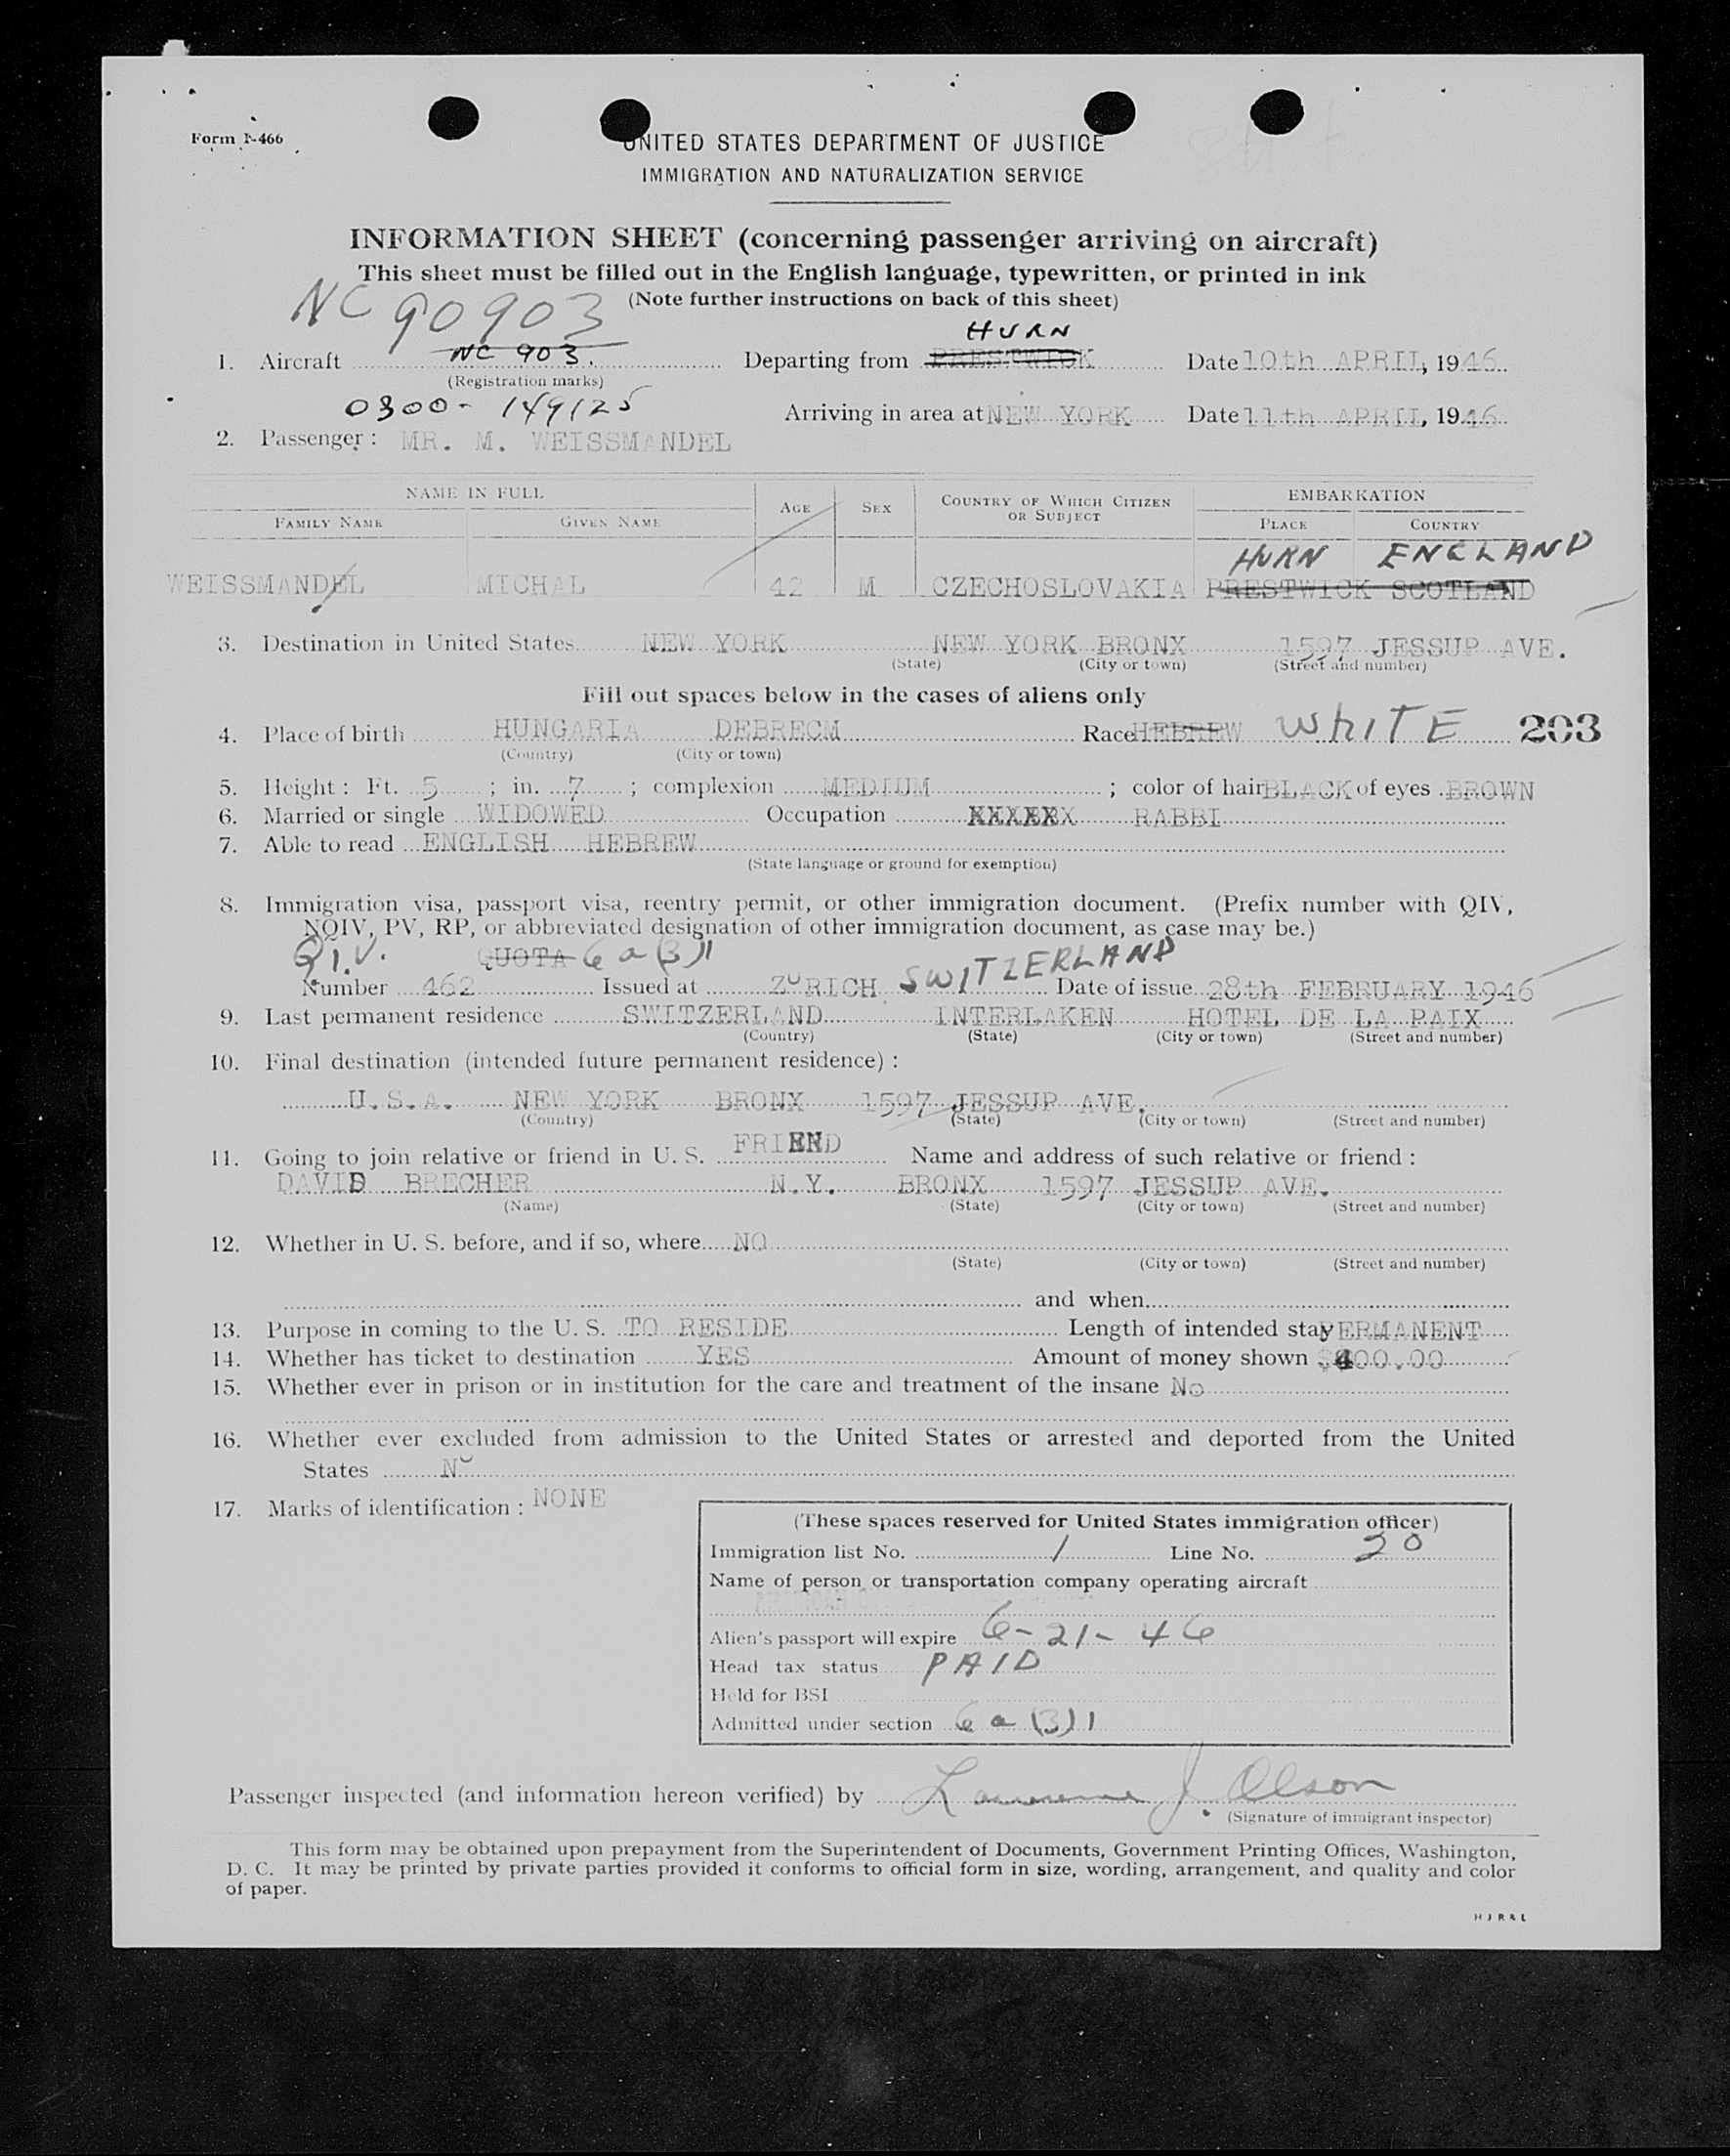 Form I-466
UNITED STATES DEPARTMENT OF JUSTICE
IMMIGRATION AND NATURALIZATION SERVICE
INFORMATION SHEET (concerning passenger arriving on aircraft)
This sheet must be filled out in the English language, typewritten, or printed in ink
(Note further instructions on back of this sheet)
NC 90903
HURN
1. Aircraft NC 903. Departing from PRESTWICK Date 10th APRIL, 1946
(Registration marks)
0300- 149125 Arriving in area at NEW YORK Date 11th APRIL, 1946
2. Passenger: MR. M. WEISSMANDEL
NAME IN FULL AGE SEX COUNTRY OF WHICH CITIZEN OR SUBJECT EMBARKATION
FAMILY NAME GIVEN NAME PLACE COUNTRY
HURN ENGLAND
WEISSMANDEL MICHAL 42 M CZECHOSLOVAKIA PRESTWICK SCOTLAND
3. Destination in United States NEW YORK NEW YORK BRONX 1597 JESSUP AVE.
(State) (City or town) (Street and number)
Fill out spaces below in the cases of aliens only
4. Place of birth HUNGARIA DEBRECM Race HEBREW WhITE 203
(Country) (City or town)
5. Height: Ft. 5 ; in. 7 ; complexion MEDIUM ; color of hair BLACK of eyes BROWN
6. Married or single WIDOWED Occupation XXXXXX RABBI
7. Able to read ENGLISH HEBREW
(State language or ground for exemption)
8. Immigration visa, passport visa, reentry permit, or other immigration document. (Prefix number with QIV,
NQIV, PV, RP, or abbreviated designation of other immigration document, as case may be.)
Q.I.V. QUOTA 6 a (3) 1
Number 462 Issued at ZURICH SWITZERLAND Date of issue 28th FEBRUARY 1946
9. Last permanent residence SWITZERLAND INTERLAKEN HOTEL DE LA PAIX
(Country) (State) (City or town) (Street and number)
10. Final destination (intended future permanent residence):
U.S.A. NEW YORK BRONX 1597 JESSUP AVE.
(Country) (State) (City or town) (Street and number)
11. Going to join relative or friend in U. S. FRIEND Name and address of such relative or friend:
DAVID BRECHER N.Y. BRONX 1597 JESSUP AVE.
(Name) (State) (City or town) (Street and number)
12. Whether in U. S. before, and if so, where NO
(State) (City or town) (Street and number)
and when
13. Purpose in coming to the U. S. TO RESIDE Length of intended stay PERMANENT
14. Whether has ticket to destination YES Amount of money shown $400.00
15. Whether ever in prison or in institution for the care and treatment of the insane No
16. Whether ever excluded from admission to the United States or arrested and deported from the United
States No
17. Marks of identification: NONE
(These spaces reserved for United States immigration officer)
Immigration list No. 1 Line No. 20
Name of person or transportation company operating aircraft
Alien's passport will expire 6-21-46
Head tax status PAID
Held for BSI
Admitted under section 6 a (3) 1
Passenger inspected (and information hereon verified) by Lawrence J. Olson
(Signature of immigrant inspector)
This form may be obtained upon prepayment from the Superintendent of Documents, Government Printing Offices, Washington,
D. C. It may be printed by private parties provided it conforms to official form in size, wording, arrangement, and quality and color
of paper.
H J R & L